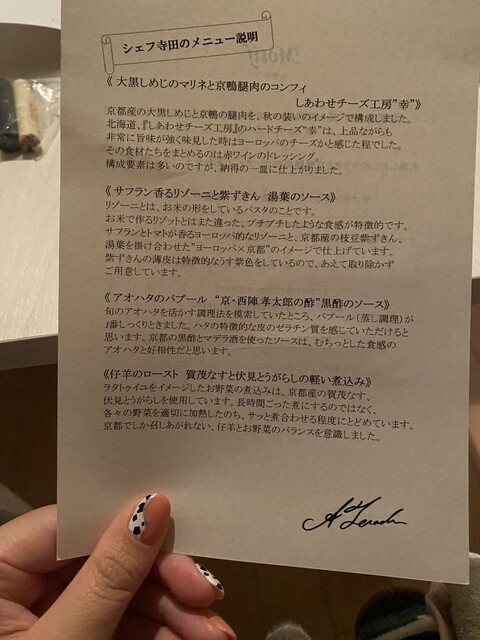 シェフ寺田のメニュー説明
《 大黒しめじのマリネと京鴨腿肉のコンフィ
しあわせチーズ工房”幸”》
京都産の大黒しめじと京鴨の腿肉を、秋の装いのイメージで構成しました。
北海道、『しあわせチーズ工房』のハードチーズ“幸”は、上品ながらも
非常に旨味が強く味見した時はヨーロッパのチーズかと感じた程でした。
その食材たちをまとめるのは赤ワインのドレッシング。
構成要素は多いのですが、納得の一皿に仕上がりました。
《 サフラン香るリゾーニと紫ずきん 湯葉のソース》
リゾーニとは、お米の形をしているパスタのことです。
お米で作るリゾットとはまた違った、プチプチしたような食感が特徴的です。
サフランとトマトが香るヨーロッパ的なリゾーニと、京都産の枝豆紫ずきん、
湯葉を掛け合わせた”ヨーロッパ×京都”のイメージで仕上げています。
紫ずきんの薄皮は特徴的なうす紫色をしているので、あえて取り除かず
ご用意しています。
《アオハタのバプール “京・西陣 孝太郎の酢”黒酢のソース》
旬のアオハタを活かす調理法を模索していたところ、バプール（蒸し調理）が
1番しっくりときました。ハタの特徴的な皮のゼラチン質を感じていただけると
思います。京都の黒酢とマデラ酒を使ったソースは、むちっとした食感の
アオハタと好相性だと思います。
《仔羊のロースト 賀茂なすと伏見とうがらしの軽い煮込み》
ラタトゥイユをイメージしたお野菜の煮込みは、京都産の賀茂なす、
伏見とうがらしを使用しています。長時間ごった煮にするのではなく、
各々の野菜を適切に加熱したのち、サッと煮合わせる程度にとどめています。
京都でしか召しあがれない、仔羊とお野菜のバランスを意識しました。